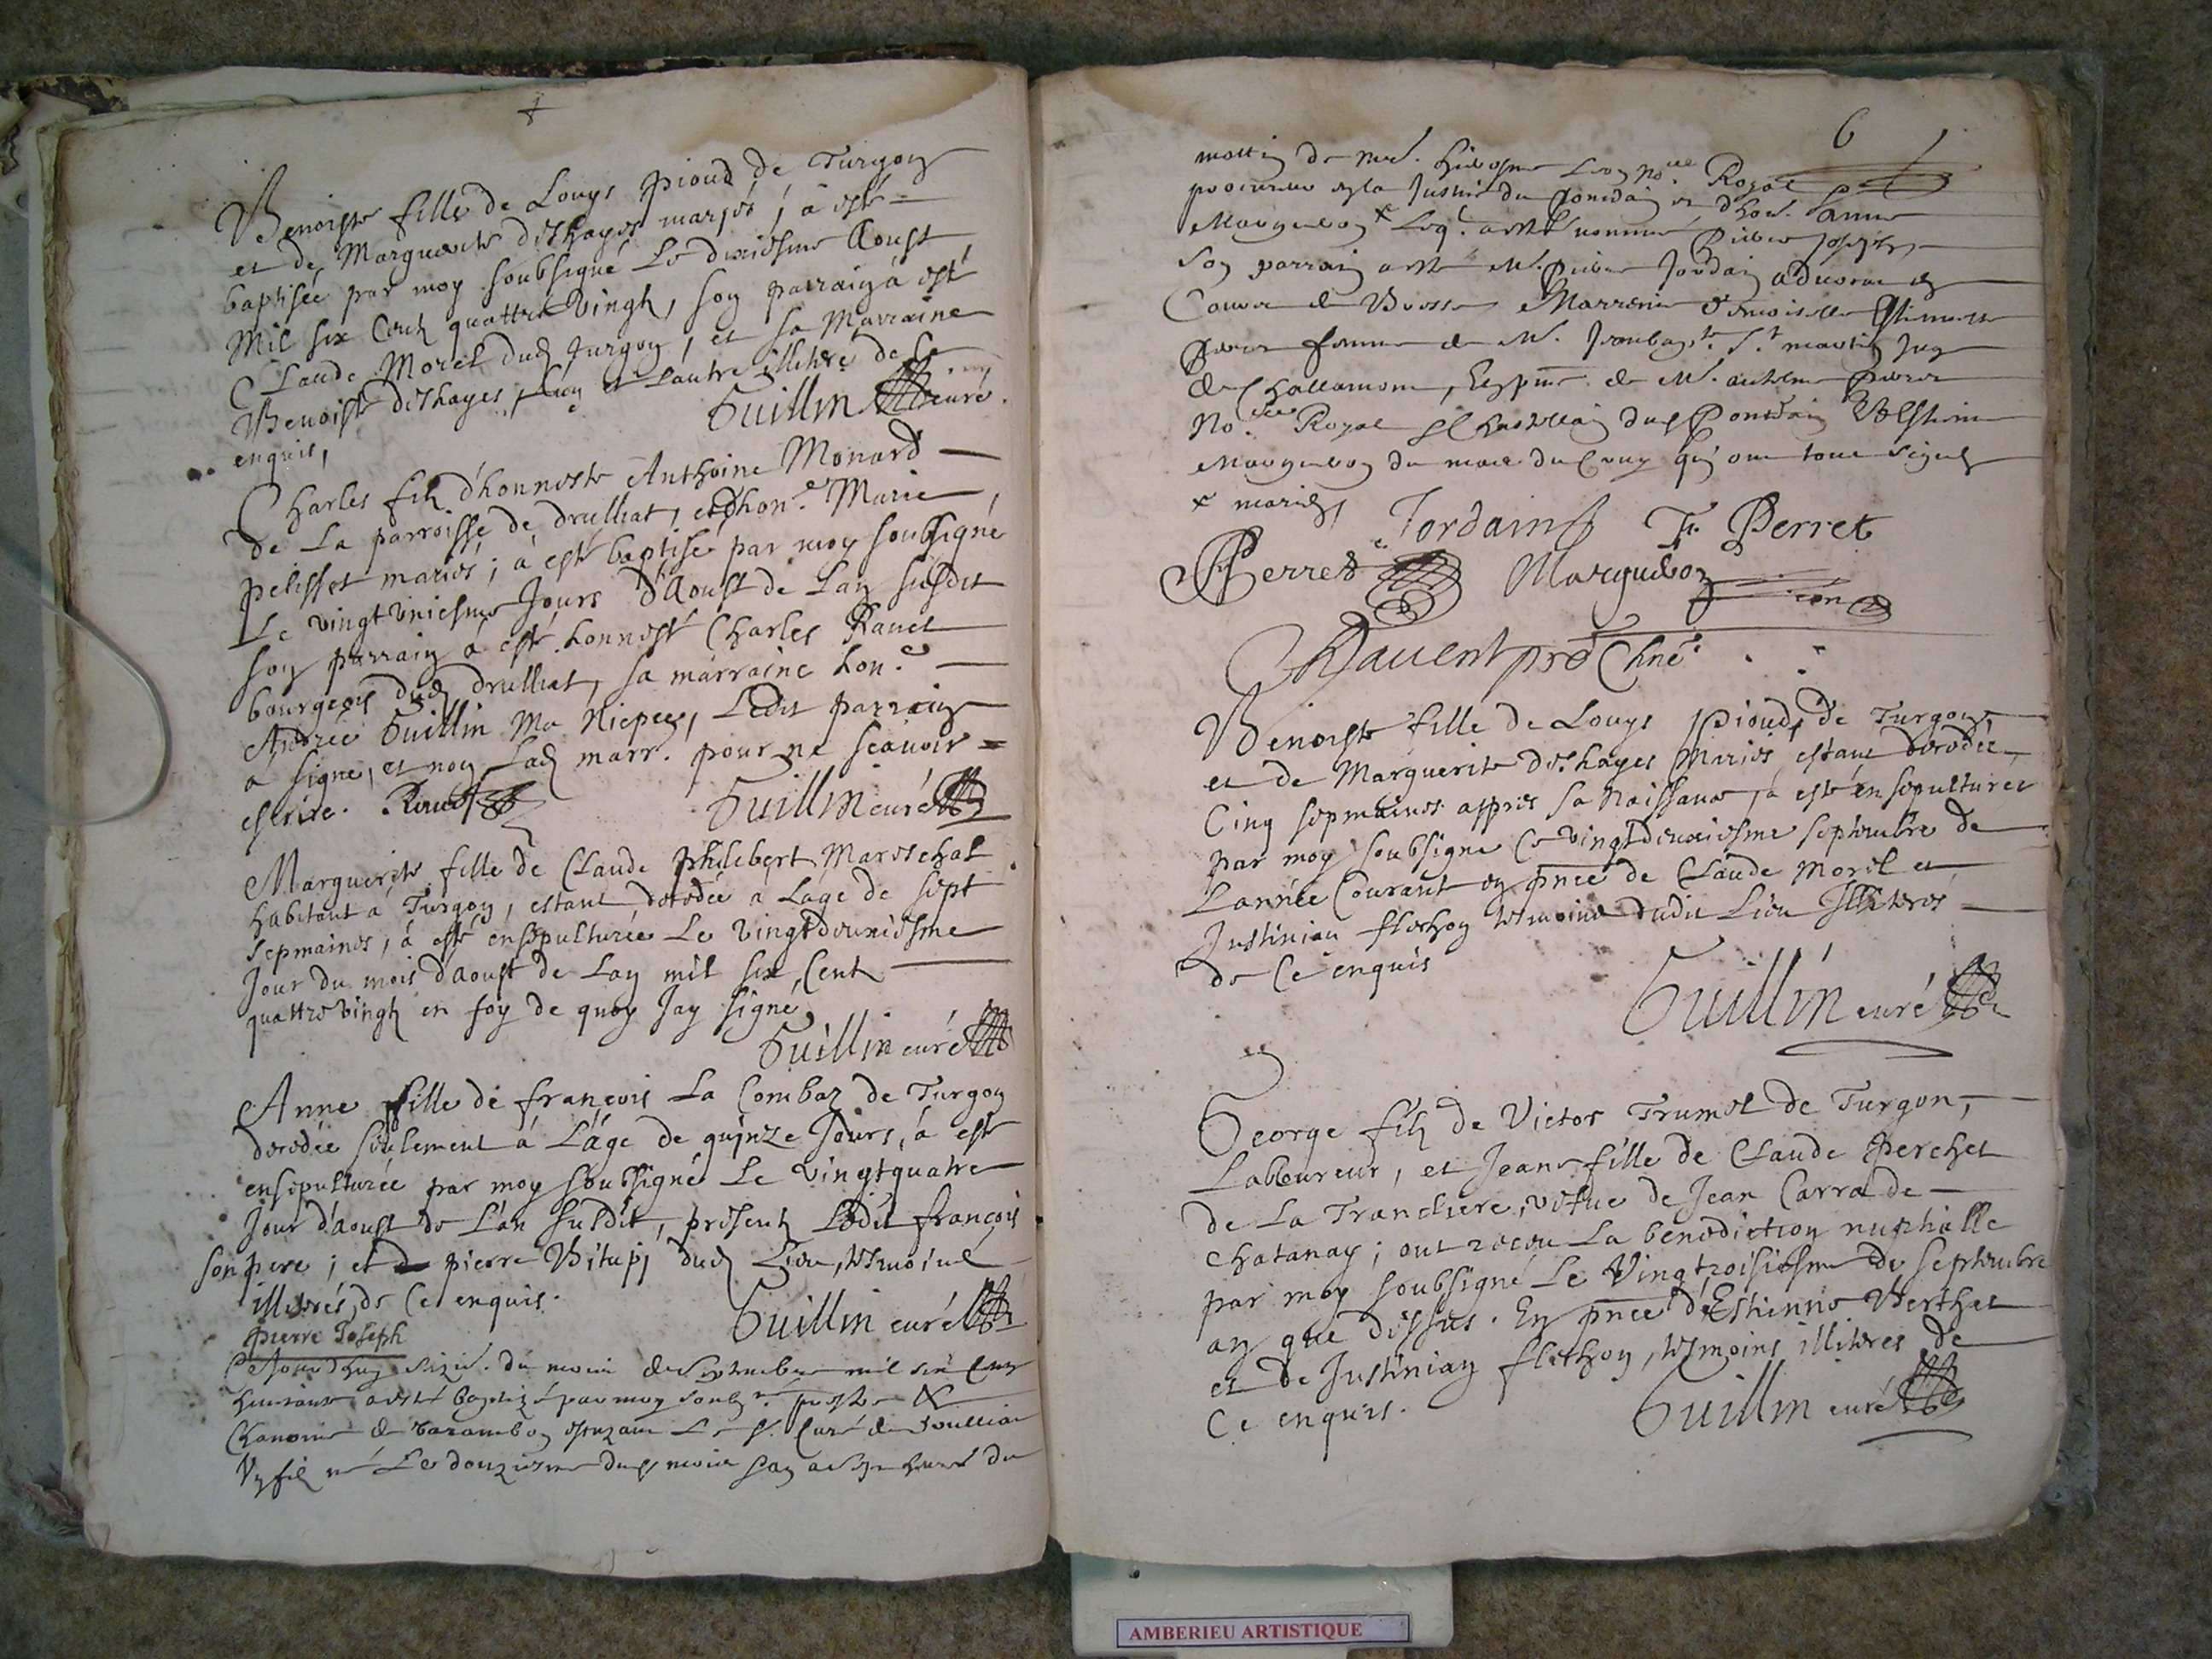 Benoiste fille de Louys pioud de Turgon
et de Marguerite deshayes mariés ; à esté
baptisée par moy soubsigné Le dixiesme Aoust
Mil six Cents quattre vingts, son parrain à esté
Claude Morel dud Turgon, et sa Marraine
Benoiste deshayes, L'un et Lautre illitére de Ce
enquis,
Guillin curé.
Charles fils d'honneste Anthoine Monard
de La parroisse de drulliat, et d'hon.e Marie
pelisset mariés ; à esté baptisé par moy soubsigné
Le vingt uniesme Jours d'Aoust de Lan susdit
son parrain à esté honneste Charles Rauet
bourgeois dud drulliat, sa marraine hon.e
Andrée Guillin Ma Niepce, Ledit parrain
a signe, et non Lad marr. pour ne scauoir
escrire. Rauet
Guillin curé
Marguerite fille de Claude philibert Mareschal
habitant à Turgon, estant decedée à Lage de sept
sepmaines, à esté ensepulturée Le vingt deuxiesme
Jour du mois d'aoust de Lan mil six Cent
quattre vingts en foy de quoy Jay signé
Guillin curé
Anne fille de françois La Combaz de Turgon
decedée seulement à Lâge de quinze Jours, à esté
ensepulturée par moy soubsigné Le vingt quatre
Jour d'aoust de L'an susdit, présents Ledit françois
son pere ; et pierre Vitupj dud Lieu, tesmoins
illiterés de Ce enquis.
Guillin curé
pierre Joseph
Ce Jourdhuy du mois de Septembre mil six Cens
huictante a esté baptizé par moy soubs.né
Chanoine de Varambon Le s. Curé de
Un fils né Le douziesme dud mois
6
Royal
procureur
Margueron nommé pierre Joseph
Son parrain a esté M. Jordain aduocat
Marrenne demoiselle
femme de M. St martin Juge
de Challamont, de M. Perret
No.re Royal
Margueron qui ont tous signés
x mariés
Jordain F. Perret
Perret Margueron
Rauent pre Chne
Benoiste fille de Louys pioud, de Turgon,
et de Marguerite deshayes Mariés, estant decedée
Cinq sepmaines apprés sa Naissance, à esté ensepulturée
par moy soubsigné Ce vingt deuxiesme septembre de
Lannée Courant en pnce de Claude Morel et
Justinian flechon tesmoins dudit Lieu Illiterés
de Ce enquis
Guillin curé
George fils de Victor Trumel de Turgon,
Laboureur, et Jeane fille de Claude Perchet
de La Trancliere, vefue de Jean Carra de
Chatanay ; ont receu La benediction nuphialle
par moy soubsigné Le Vingtroisiesme de septembre
an que dessus. En pnce d'Estienne Berthet
et de Justinian flechon, tesmoins illiteres de
Ce enquis.
Guillin curé
AMBERIEU ARTISTIQUE